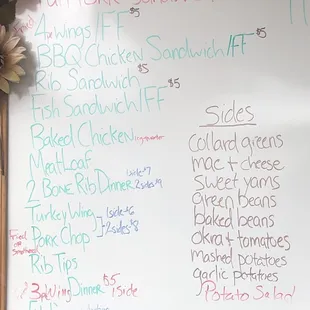 4 wings/FF $5
BBQ Chicken Sandwich/FF $5
Rib Sandwich $5
Fish Sandwich/FF $5
Baked Chicken
MeatLoaf
2 Bone Rib Dinner 1side $7
2 sides $9
Turkey Wing 1side $6
Pork Chop 2sides $8
Fried or Smothered
Rib Tips
3pc Wing Dinner $5 1side
Sides
collard greens
mac + cheese
sweet yams
green beans
baked beans
okra + tomatoes
mashed potatoes
garlic potatoes
Potato Salad